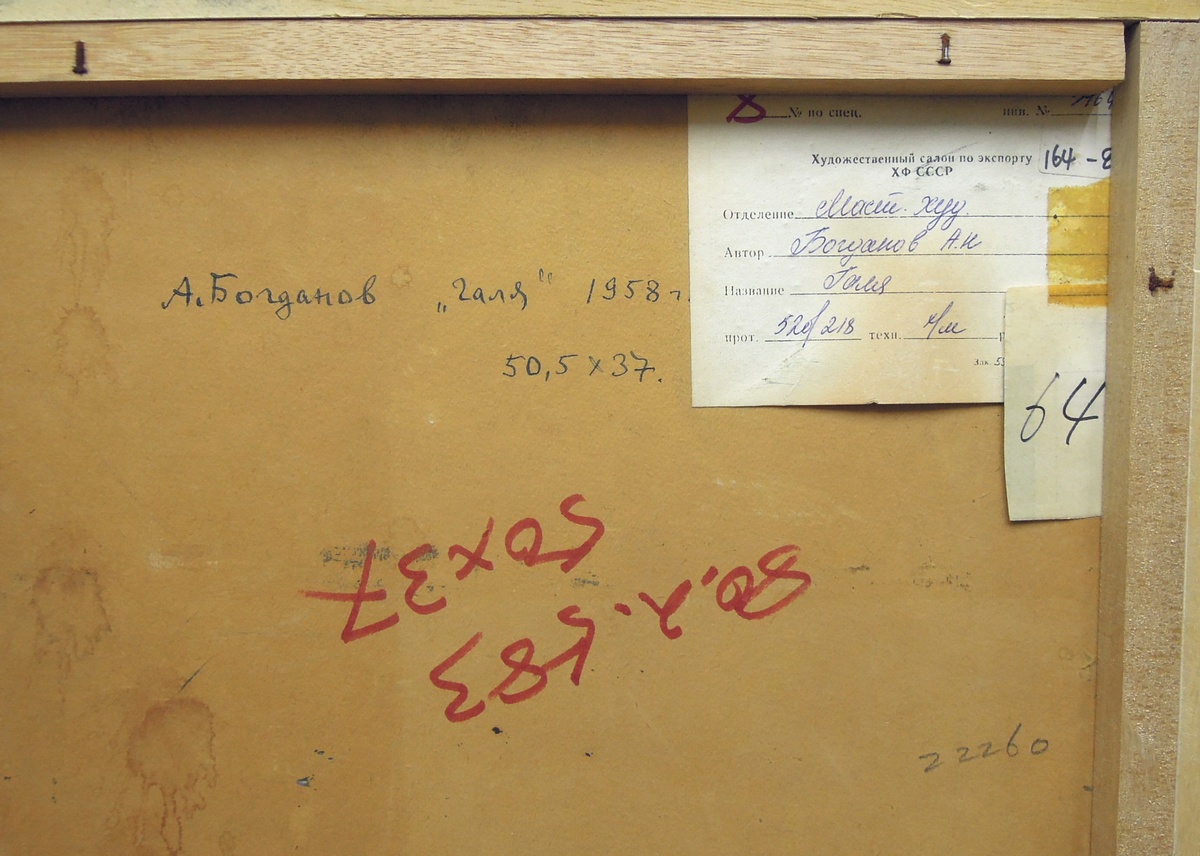 № по спец. инв. №
Художественный салон по экспорту
ХФ СССР
164 - 8
Отделение Маст. худ.
Автор Богданов А.Н
Название Галя
прот. 520/218 техн. к/м
Зак. 53
64
А.Богданов „Галя“ 1958 г.
50,5 x 37.
50 x 37
583
22260